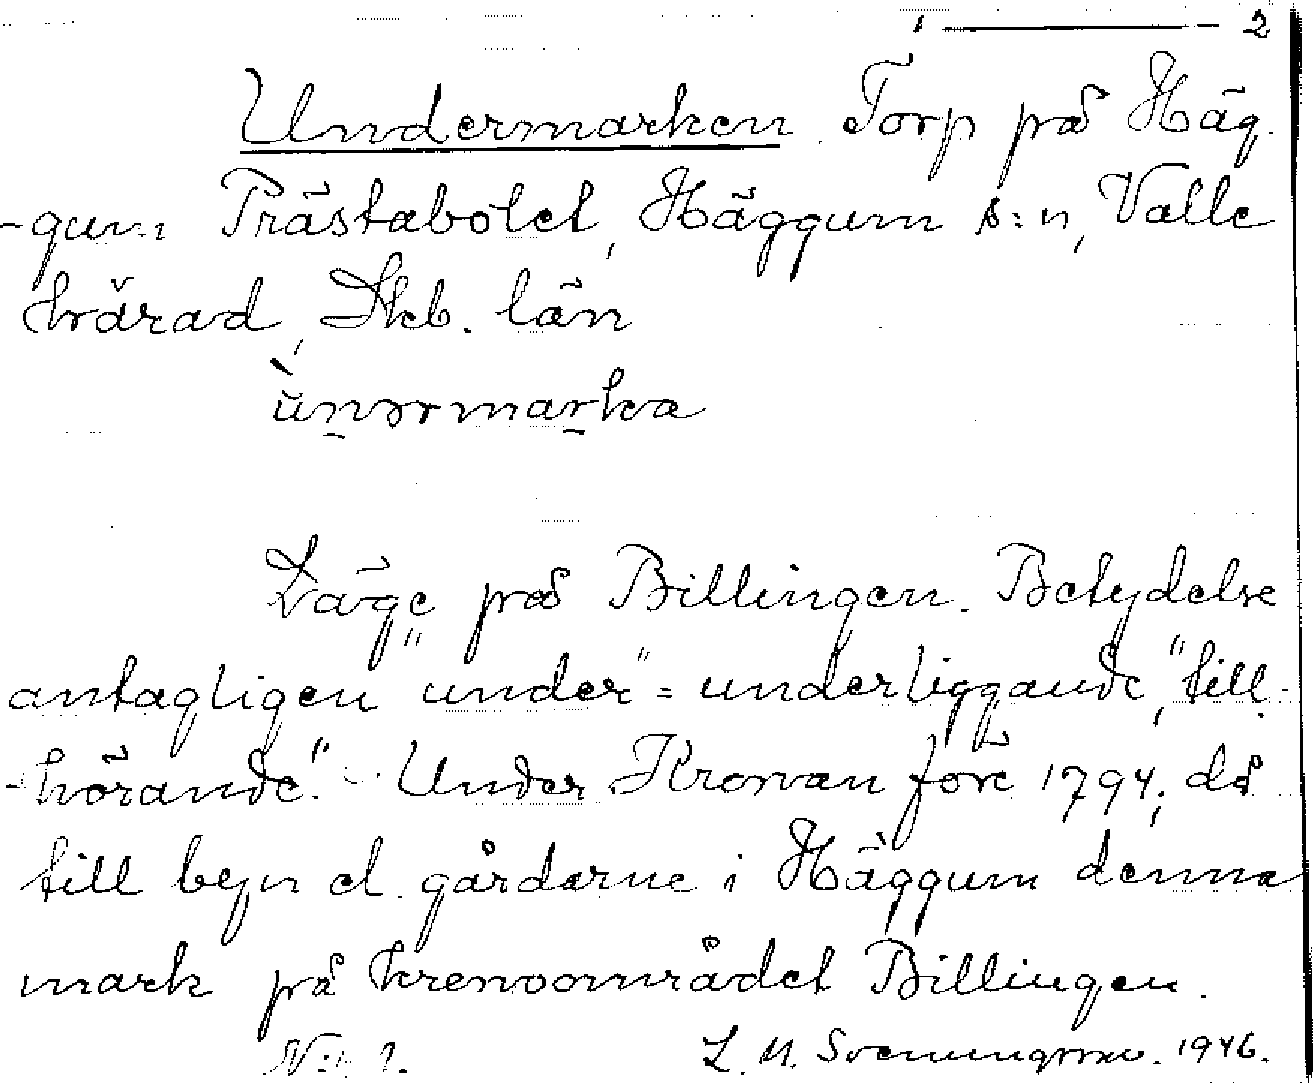 2
Undermarken Torp på Häg-
-gum Prästabolet, Häggum s:n, Valle
härad, Skb. län
ùnərmarka
Läge på Billingen. Betydelse
antagligen "under" = underliggande, "till-
-hörande". - Under Kronan före 1794; då
till byn el. gårdarne i Häggum denna
mark på kronoområdet Billingen.
L. M. Svenungsson. 1946.